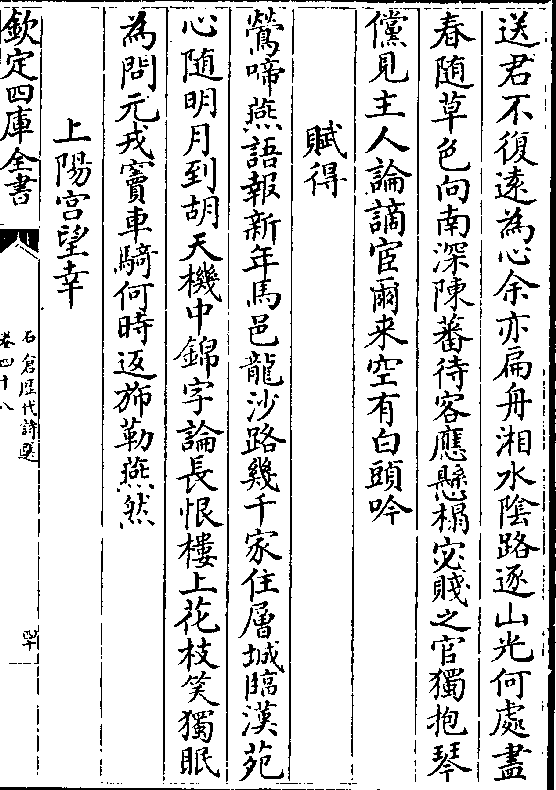 送君不復遠為心余亦扁舟湘水陰路逐山光何處盡
春隨草色向南深陳蕃待客應懸榻宓賤之官獨抱琴
儻見主人論謫宦爾来空有白頭吟
賦得
鶯啼燕語報新年馬邑龍沙路幾千家住層城臨漢苑
心随明月到胡天機中錦字論長恨樓上花枝笑獨眠
為問元戎竇車騎何時返斾勒燕然
上陽宫望幸
欽定四庫全書
石倉歴代詩選
卷四十八